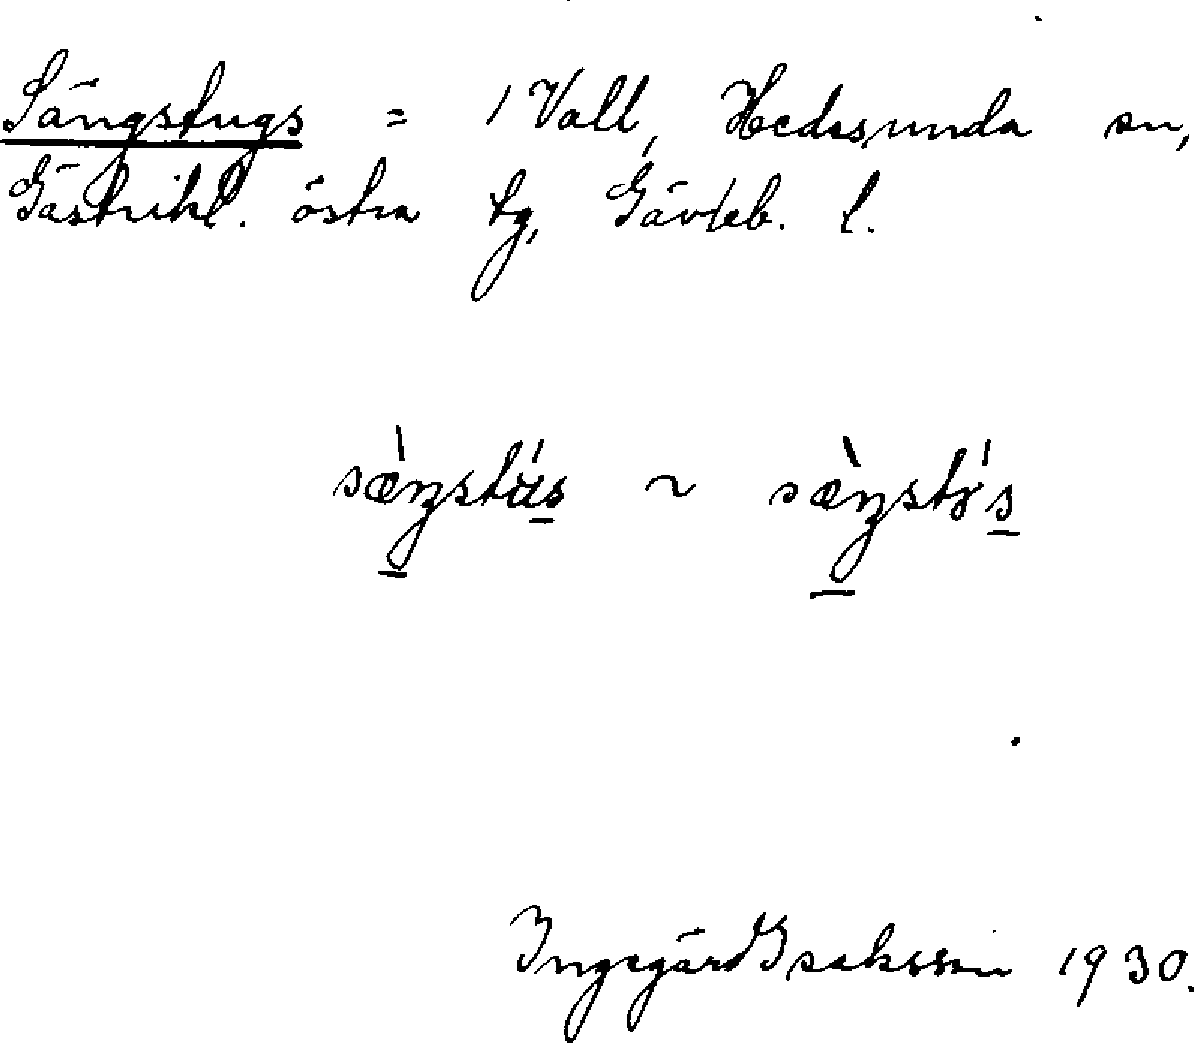 Sängstugs = 1 Vall, Hedesunda sn,
Gästrikl. östra tg, Gävleb. l.
sæ̀ŋstús ~ sæ̀ŋstɤ́s
Ingegärd Isaksson 1930.